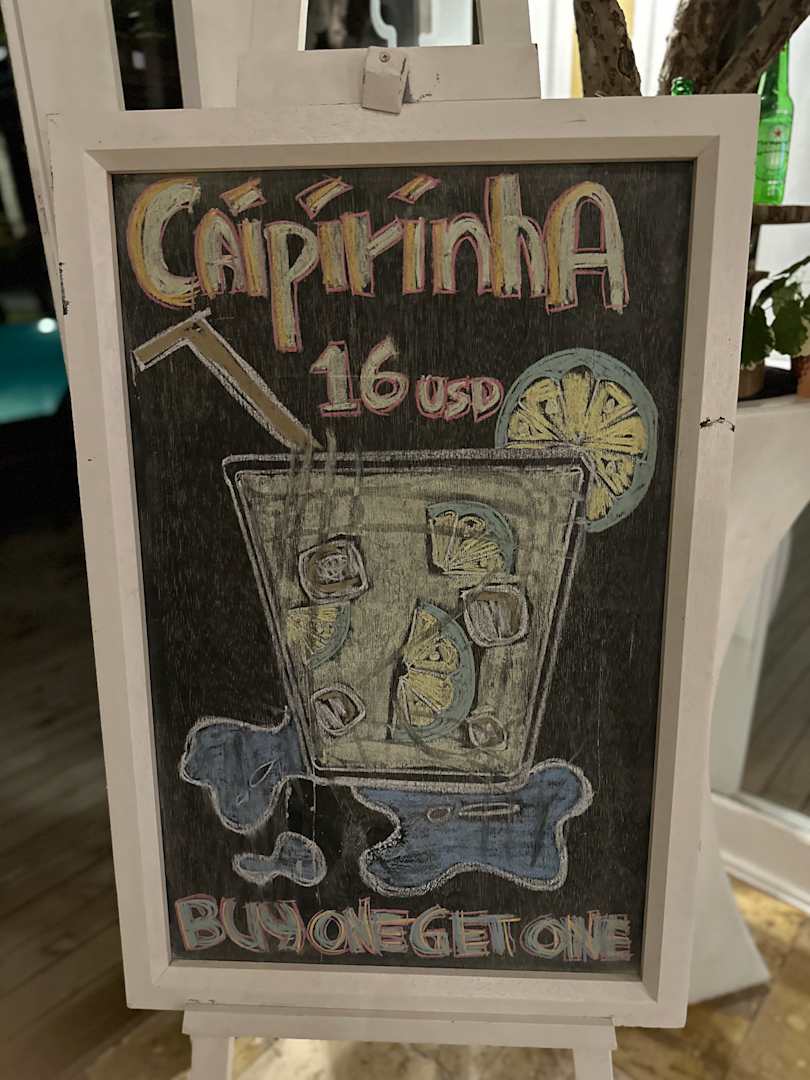 CAípírínhA
16 USD
BUY ONE GET ONE